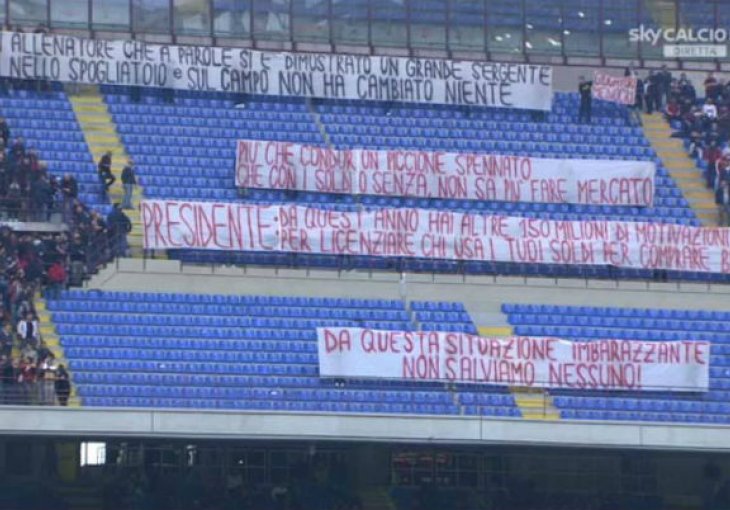 sky CALCIO
DIRETTA
ALLENATORE CHE A PAROLE SI E' DIMUSTRATO UN GRANDE SERGENTE
NELLO SPOGLIATOIO e SUL CAMPO NON HA CAMBIATO NIENTE
PIU' CHE CONDOR UN PICCIONE SPENNATO
CHE CON I SOLDI O SENZA, NON SA PIU' FARE MERCATO
PRESIDENTE: DA QUEST'ANNO HAI ALTRE 150 MILIONI DI MOTIVAZIONI
PER LICENZIARE CHI USA I TUOI SOLDI PER COMPRARE
DA QUESTA SITUAZIONE IMBARAZZANTE
NON SALVIAMO NESSUNO!